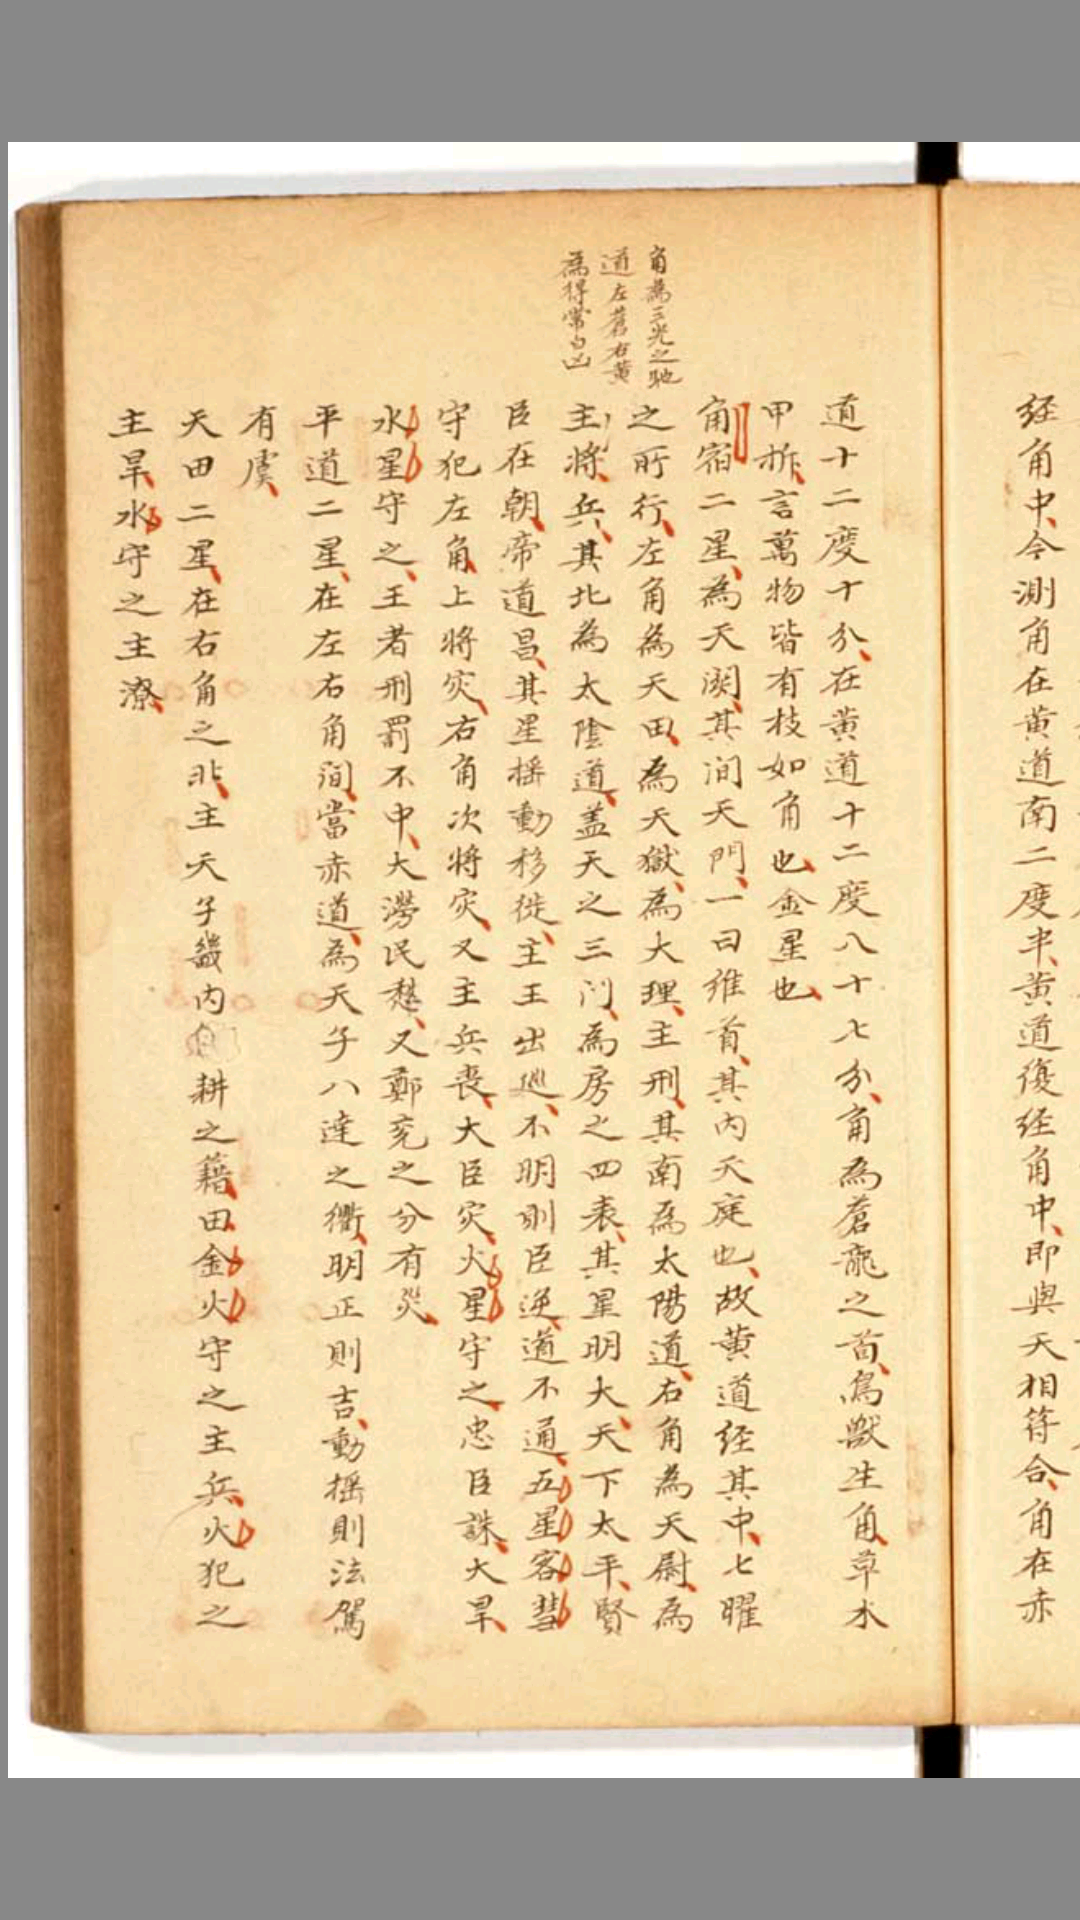 经角中今測角在黄道南二度半黄道復经角中即與天相符合角在赤
道十二度十分在黄道十二度八十七分角為蒼龍之首鳥獸生角草木
甲拆言萬物皆有枝如角也金星也
角宿二星為天闕其间天門一曰維首其内天庭也故黄道经其中七曜
之所行左角為天田為天獄為大理主刑其南為太陽道右角為天尉為
主將兵其北為太陰道盖天之三门為房之四表其星明大天下太平賢
臣在朝帝道昌其星摇動移徙主王出廵不明則臣逆道不通五星客彗
守犯左角上將灾右角次將灾又主兵喪大臣灾火星守之忠臣誅大旱
水星守之王者刑罰不中大澇民愁又鄭兖之分有災
平道二星在左右角间當赤道為天子八達之衢明正則吉動摇則法駕
有虞
天田二星在右角之北主天子畿内耕之藉田金火守之主兵火犯之
主旱水守之主潦
角為三光之馳
道左蒼右黄
為得常自凶